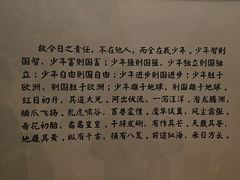 故今日之责任，不在他人，而全在我少年。少年智则
国智，少年富则国富；少年强则国强，少年独立则国独
立；少年自由则国自由；少年进步则国进步；少年胜于
欧洲，则国胜于欧洲；少年雄于地球，则国雄于地球。
红日初升，其道大光。河出伏流，一泻汪洋。潜龙腾渊，
鳞爪飞扬。乳虎啸谷，百兽震惶。鹰隼试翼，风尘翕张。
奇花初胎，矞矞皇皇。干将发硎，有作其芒。天戴其苍，
地履其黄。纵有千古，横有八荒。前途似海，来日方长。